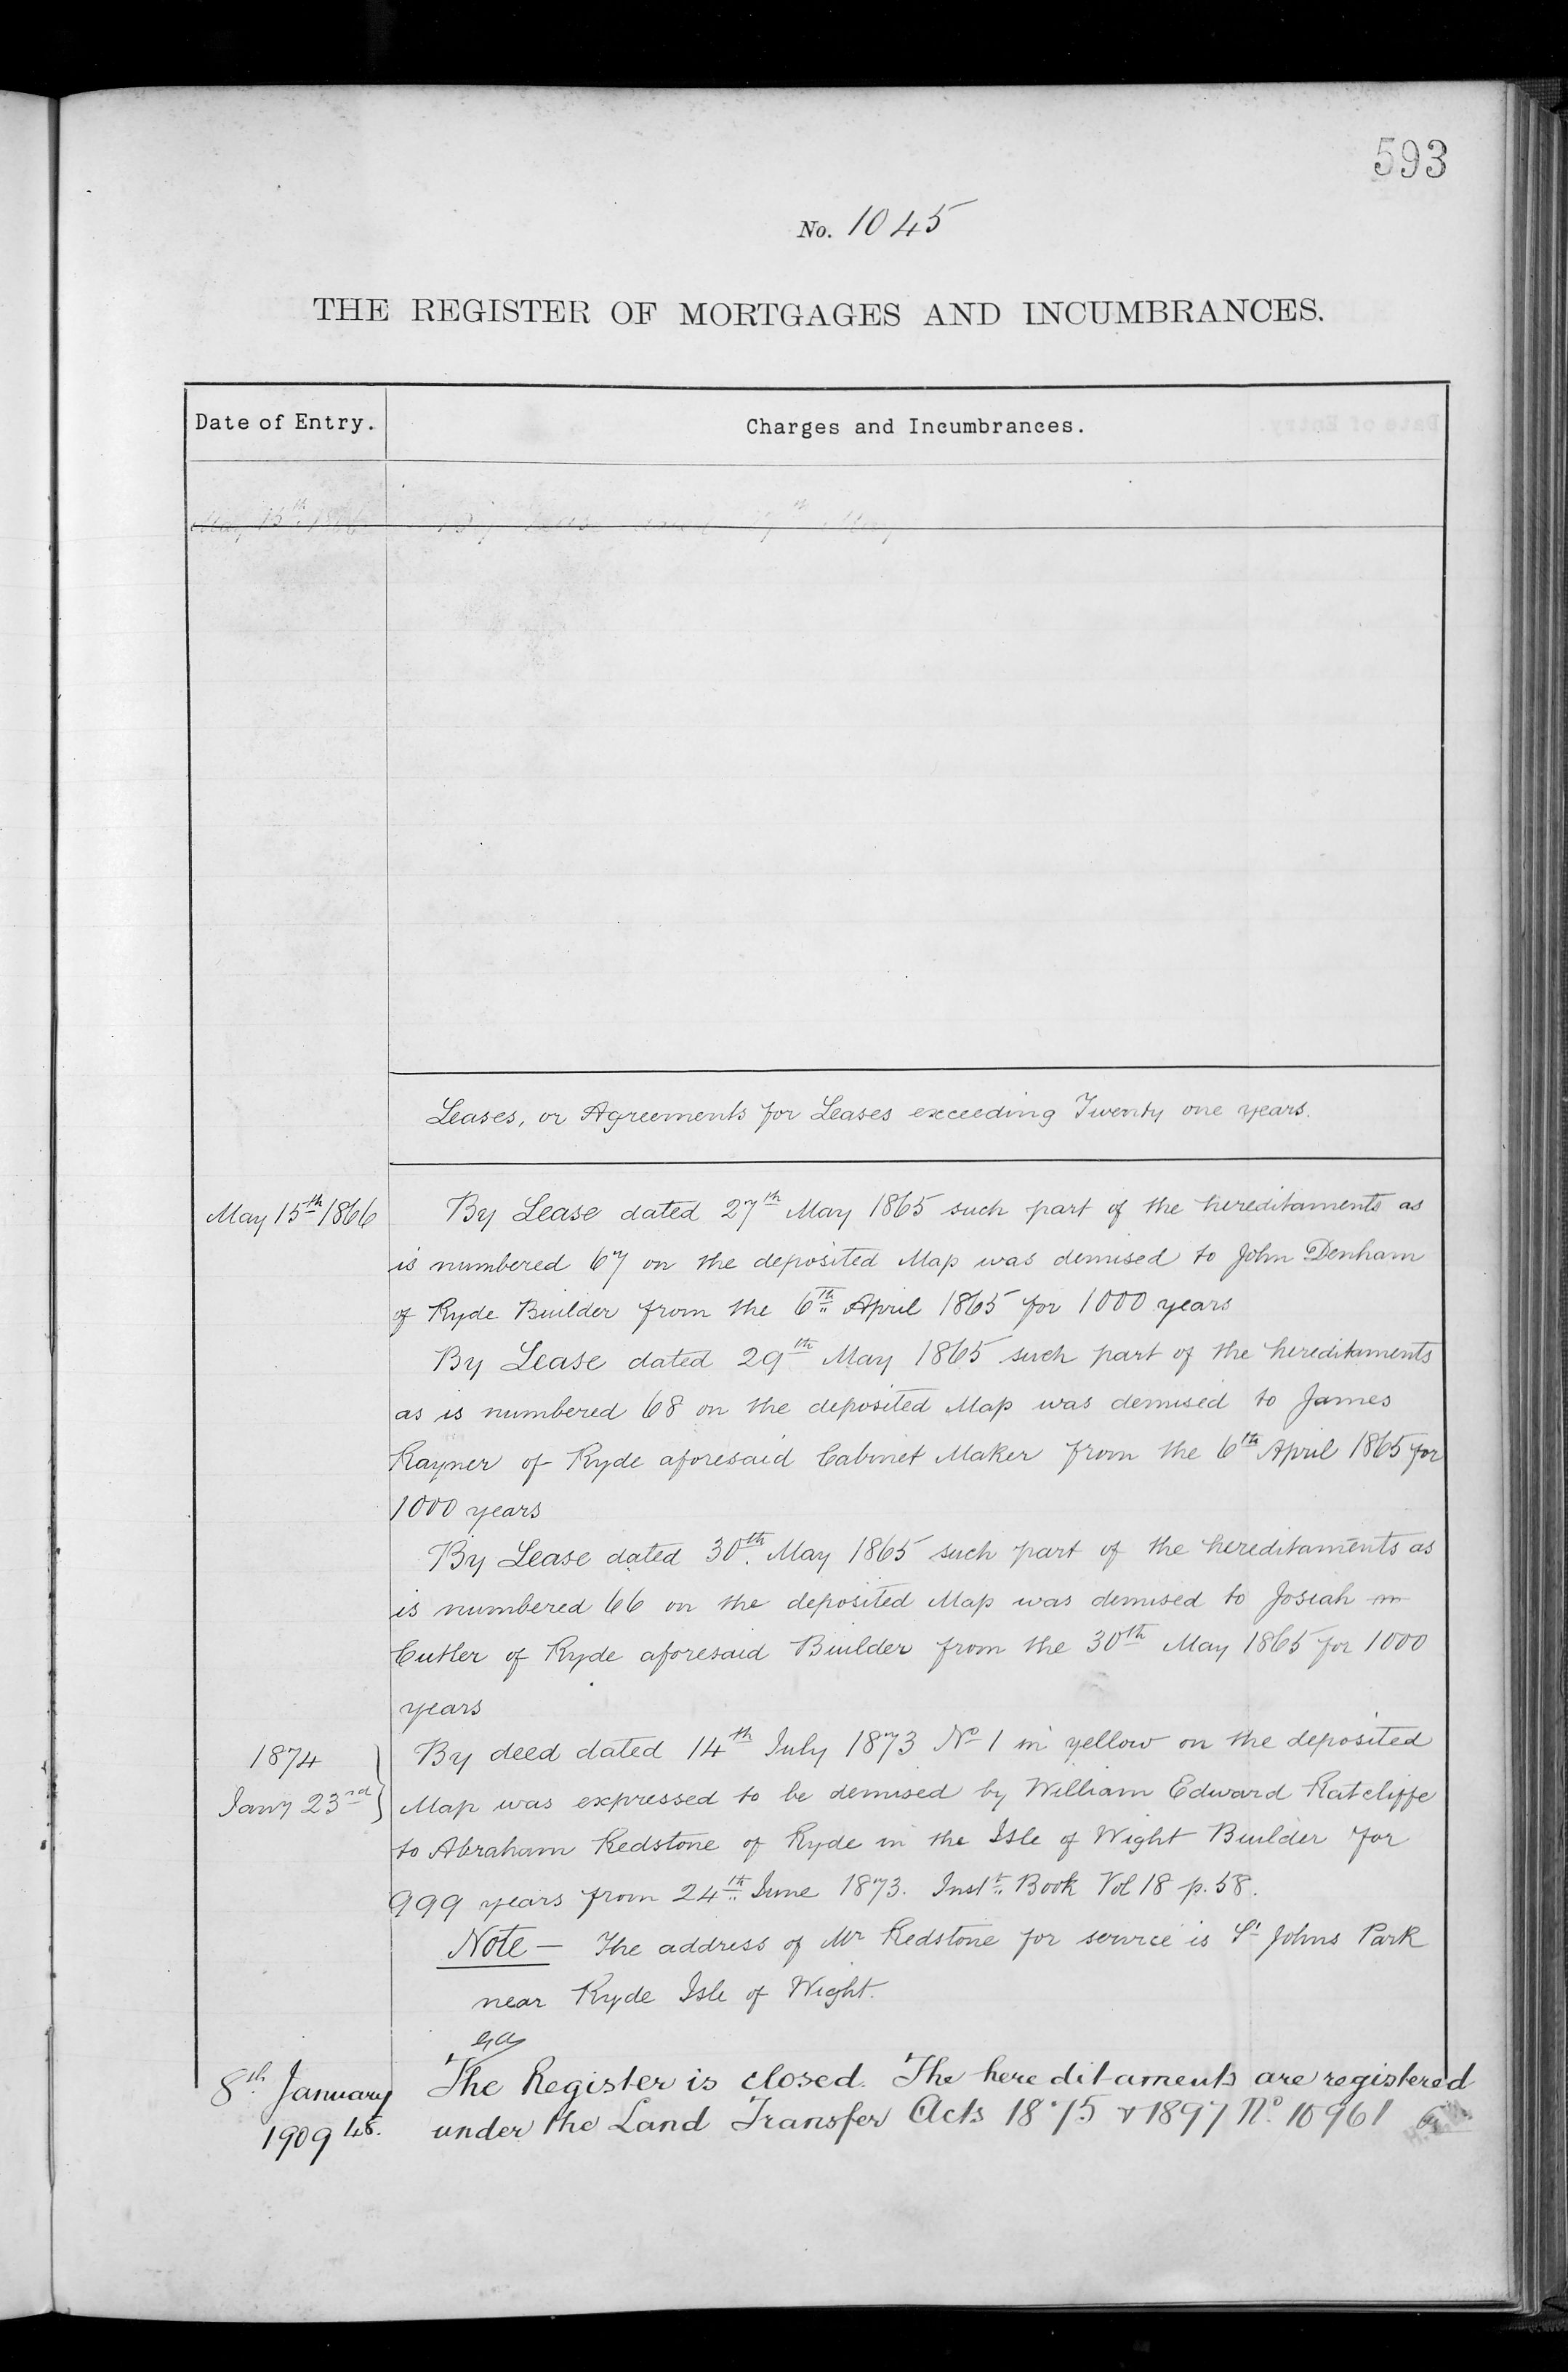 593
No. 1045
THE REGISTER OF MORTGAGES AND INCUMBRANCES.
Date of Entry.
Charges and Incumbrances.
May 15th 1866 By Lease dated 27th May
Leases, or Agreements for Leases exceeding Twenty one years.
May 15th 1866 By Lease dated 27th May 1865 such part of the hereditaments as
is numbered 67 on the deposited Map was demised to John Denham
of Ryde Builder from the 6th April 1865 for 1000 years
By Lease dated 29th May 1865 such part of the hereditaments
as is numbered 68 on the deposited Map was demised to James
Rayner of Ryde aforesaid Cabinet Maker from the 6th April 1865 for
1000 years
By Lease dated 30th May 1865 such part of the hereditaments as
is numbered 66 on the deposited Map was demised to Josiah m
Cutler of Ryde aforesaid Builder from the 30th May 1865 for 1000
years
1874 By deed dated 14th July 1873 No 1 in yellow on the deposited
Jany 23rd Map was expressed to be demised by William Edward Ratcliffe
to Abraham Redstone of Ryde in the Isle of Wight Builder for
999 years from 24th June 1873. Instt. Book Vol 18 p. 58.
Note – The address of Mr Redstone for service is St Johns Park
near Ryde Isle of Wight.
8th January The Register is closed. The hereditaments are registered
1909 under the Land Transfer Acts 1875 & 1897 No. 10961